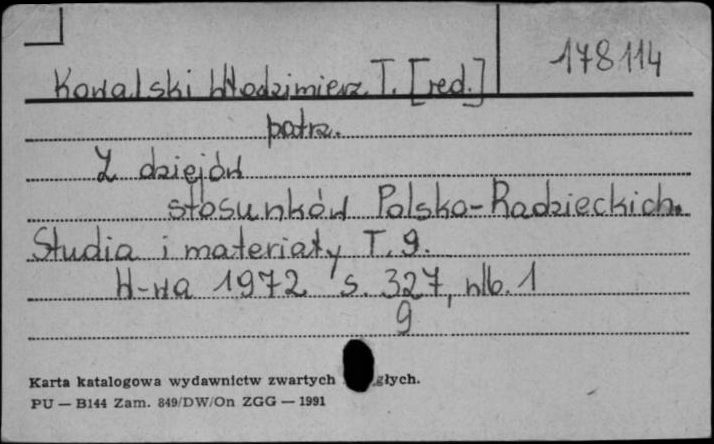 178114
Kowalski Włodzimierz T. [red.]
patrz.
Z dziejów
stosunków Polsko-Radzieckich.
Studia i materiały T. 9.
W-wa 1972 s. 327, nlb. 1
9
Karta katalogowa wydawnictw zwartych głych.
PU — B144 Zam. 849/DW/On ZGG — 1991